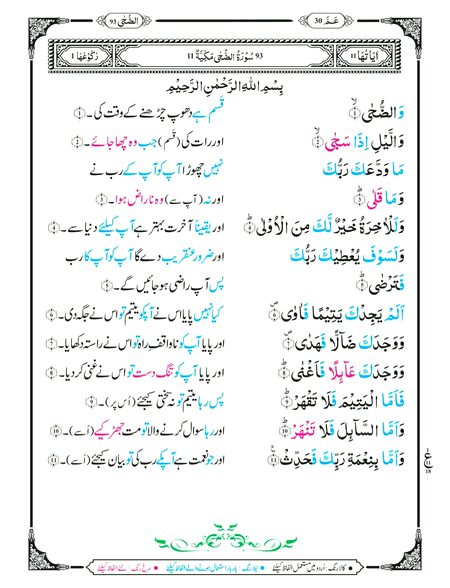 عَـمّ 30
الضُّحٰى 93
اٰيَاتُهَا 11
93 سُوْرَةُ الضُّحٰى مَكِّيَّةٌ 11
رُكُوْعُهَا 1
بِسْمِ اللهِ الرَّحْمٰنِ الرَّحِيْمِ
وَالضُّحٰى ۙ﴿۱﴾ قسم ہے دھوپ چڑھنے کے وقت کی۔﴿۱﴾
وَالَّيْلِ اِذَا سَجٰى ۙ﴿۲﴾ اور رات کی (قسم) جب وہ چھا جائے۔﴿۲﴾
مَا وَدَّعَكَ رَبُّكَ نہیں چھوڑا آپ کو آپ کے رب نے
وَمَا قَلٰى ؕ﴿۳﴾ اور نہ (آپ سے) وہ ناراض ہوا۔﴿۳﴾
وَلَلْاٰخِرَةُ خَيْرٌ لَّكَ مِنَ الْاُوْلٰى ؕ﴿۴﴾ اور یقیناً آخرت بہتر ہے آپ کیلئے دنیا سے۔﴿۴﴾
وَلَسَوْفَ يُعْطِيْكَ رَبُّكَ اور ضرور عنقریب دے گا آپ کو آپ کا رب
فَتَرْضٰى ؕ﴿۵﴾ پس آپ راضی ہو جائیں گے۔﴿۵﴾
اَلَمْ يَجِدْكَ يَتِيْمًا فَاٰوٰى ۪﴿۶﴾ کیا نہیں پایا اس نے آپکو یتیم تو اس نے جگہ دی۔﴿۶﴾
وَوَجَدَكَ ضَآلًّا فَهَدٰى ۪﴿۷﴾ اور پایا آپ کو ناواقف راہ تو اس نے راستہ دکھایا۔﴿۷﴾
وَوَجَدَكَ عَآىِٕلًا فَاَغْنٰى ؕ﴿۸﴾ اور پایا آپ کو تنگ دست تو اس نے غنی کر دیا۔﴿۸﴾
فَاَمَّا الْيَتِيْمَ فَلَا تَقْهَرْ ؕ﴿۹﴾ پس رہا یتیم تو نہ سختی کیجئے (اُس پر)۔﴿۹﴾
وَاَمَّا السَّآىِٕلَ فَلَا تَنْهَرْ ؕ﴿۱۰﴾ اور رہا سوال کرنے والا تو مت جھڑکیے (اُسے)۔﴿۱۰﴾
وَاَمَّا بِنِعْمَةِ رَبِّكَ فَحَدِّثْ ﴿۱۱﴾ اور جو نعمت ہے آپکے رب کی تو بیان کیجئے (اُسے)۔﴿۱۱﴾
ع
18
• کالا رنگ: اُردو میں مستعمل الفاظ کیلئے • نیلا رنگ: بار بار استعمال ہونے والے الفاظ کیلئے • سرخ رنگ: نئے الفاظ کیلئے